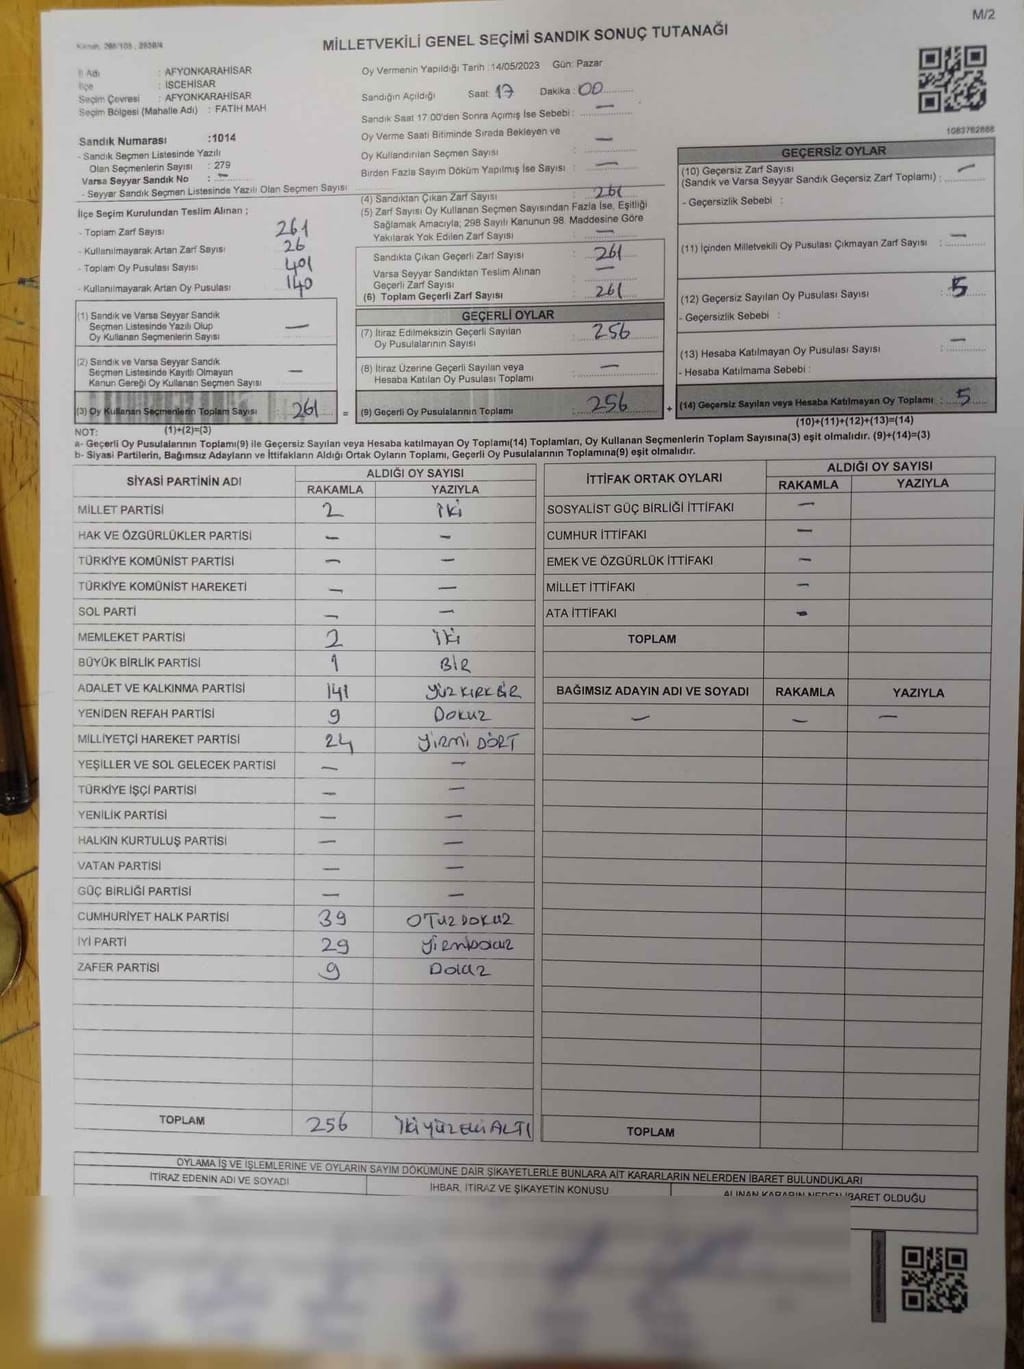 M/2
MİLLETVEKİLİ GENEL SEÇİMİ SANDIK SONUÇ TUTANAĞI
1083762888
İl Adı : AFYONKARAHİSAR
İlçe : İSCEHİSAR
Seçim Çevresi : AFYONKARAHİSAR
Seçim Bölgesi (Mahalle Adı) : FATİH MAH
Sandık Numarası :1014
- Sandık Seçmen Listesinde Yazılı
Olan Seçmenlerin Sayısı : 279
Varsa Seyyar Sandık No : -
- Seyyar Sandık Seçmen Listesinde Yazılı Olan Seçmen Sayısı
İlçe Seçim Kurulundan Teslim Alınan ;
- Toplam Zarf Sayısı 261
- Kullanılmayarak Artan Zarf Sayısı 26
- Toplam Oy Pusulası Sayısı 401
- Kullanılmayarak Artan Oy Pusulası 140
(1) Sandık ve Varsa Seyyar Sandık
Seçmen Listesinde Yazılı Olup
Oy Kullanan Seçmenlerin Sayısı —
(2) Sandık ve Varsa Seyyar Sandık
Seçmen Listesinde Kayıtlı Olmayan
Kanun Gereği Oy Kullanan Seçmen Sayısı —
(3) Oy Kullanan Seçmenlerin Toplam Sayısı : 261 =
(1)+(2)=(3)
Oy Vermenin Yapıldığı Tarih :14/05/2023 Gün: Pazar
Sandığın Açıldığı Saat: 17 Dakika: 00
Sandık Saat 17.00'den Sonra Açılmış İse Sebebi : —
Oy Verme Saati Bitiminde Sırada Bekleyen ve
Oy Kullandırılan Seçmen Sayısı —
Birden Fazla Sayım Döküm Yapılmış İse Sayısı : —
(4) Sandıktan Çıkan Zarf Sayısı : 261
(5) Zarf Sayısı Oy Kullanan Seçmen Sayısından Fazla İse, Eşitliği
Sağlamak Amacıyla; 298 Sayılı Kanunun 98. Maddesine Göre
Yakılarak Yok Edilen Zarf Sayısı : —
Sandıkta Çıkan Geçerli Zarf Sayısı : 261
Varsa Seyyar Sandıktan Teslim Alınan
Geçerli Zarf Sayısı : —
(6) Toplam Geçerli Zarf Sayısı : 261
GEÇERLİ OYLAR
(7) İtiraz Edilmeksizin Geçerli Sayılan
Oy Pusulalarının Sayısı : 256
(8) İtiraz Üzerine Geçerli Sayılan veya
Hesaba Katılan Oy Pusulası Toplamı : —
(9) Geçerli Oy Pusulalarının Toplamı : 256 +
GEÇERSİZ OYLAR
(10) Geçersiz Zarf Sayısı
(Sandık ve Varsa Seyyar Sandık Geçersiz Zarf Toplamı) : —
- Geçersizlik Sebebi :
(11) İçinden Milletvekili Oy Pusulası Çıkmayan Zarf Sayısı : —
(12) Geçersiz Sayılan Oy Pusulası Sayısı : 5
- Geçersizlik Sebebi :
(13) Hesaba Katılmayan Oy Pusulası Sayısı : —
- Hesaba Katılmama Sebebi :
(14) Geçersiz Sayılan veya Hesaba Katılmayan Oy Toplamı : 5
(10)+(11)+(12)+(13)=(14)
NOT:
a- Geçerli Oy Pusulalarının Toplamı(9) ile Geçersiz Sayılan veya Hesaba katılmayan Oy Toplamı(14) Toplamları, Oy Kullanan Seçmenlerin Toplam Sayısına(3) eşit olmalıdır. (9)+(14)=(3)
b- Siyasi Partilerin, Bağımsız Adayların ve İttifakların Aldığı Ortak Oyların Toplamı, Geçerli Oy Pusulalarının Toplamına(9) eşit olmalıdır.
SİYASİ PARTİNİN ADI ALDIĞI OY SAYISI
RAKAMLA YAZIYLA
MİLLET PARTİSİ 2 İKİ
HAK VE ÖZGÜRLÜKLER PARTİSİ — —
TÜRKİYE KOMÜNİST PARTİSİ — —
TÜRKİYE KOMÜNİST HAREKETİ — —
SOL PARTİ — —
MEMLEKET PARTİSİ 2 İKİ
BÜYÜK BİRLİK PARTİSİ 1 BİR
ADALET VE KALKINMA PARTİSİ 141 YÜZKIRKBİR
YENİDEN REFAH PARTİSİ 9 DOKUZ
MİLLİYETÇİ HAREKET PARTİSİ 24 YİRMİ DÖRT
YEŞİLLER VE SOL GELECEK PARTİSİ — —
TÜRKİYE İŞÇİ PARTİSİ — —
YENİLİK PARTİSİ — —
HALKIN KURTULUŞ PARTİSİ — —
VATAN PARTİSİ — —
GÜÇ BİRLİĞİ PARTİSİ — —
CUMHURİYET HALK PARTİSİ 39 OTUZDOKUZ
İYİ PARTİ 29 YİRMİDOKUZ
ZAFER PARTİSİ 9 DOKUZ
TOPLAM 256 İKİYÜZELLİALTI
İTTİFAK ORTAK OYLARI ALDIĞI OY SAYISI
RAKAMLA YAZIYLA
SOSYALİST GÜÇ BİRLİĞİ İTTİFAKI —
CUMHUR İTTİFAKI —
EMEK VE ÖZGÜRLÜK İTTİFAKI —
MİLLET İTTİFAKI —
ATA İTTİFAKI —
TOPLAM
BAĞIMSIZ ADAYIN ADI VE SOYADI RAKAMLA YAZIYLA
— — —
TOPLAM
OYLAMA İŞ VE İŞLEMLERİNE VE OYLARIN SAYIM DÖKÜMÜNE DAİR ŞİKAYETLERLE BUNLARA AİT KARARLARIN NELERDEN İBARET BULUNDUKLARI
İTİRAZ EDENİN ADI VE SOYADI İHBAR, İTİRAZ VE ŞİKAYETİN KONUSU ALINAN KARARIN NEDEN İBARET OLDUĞU